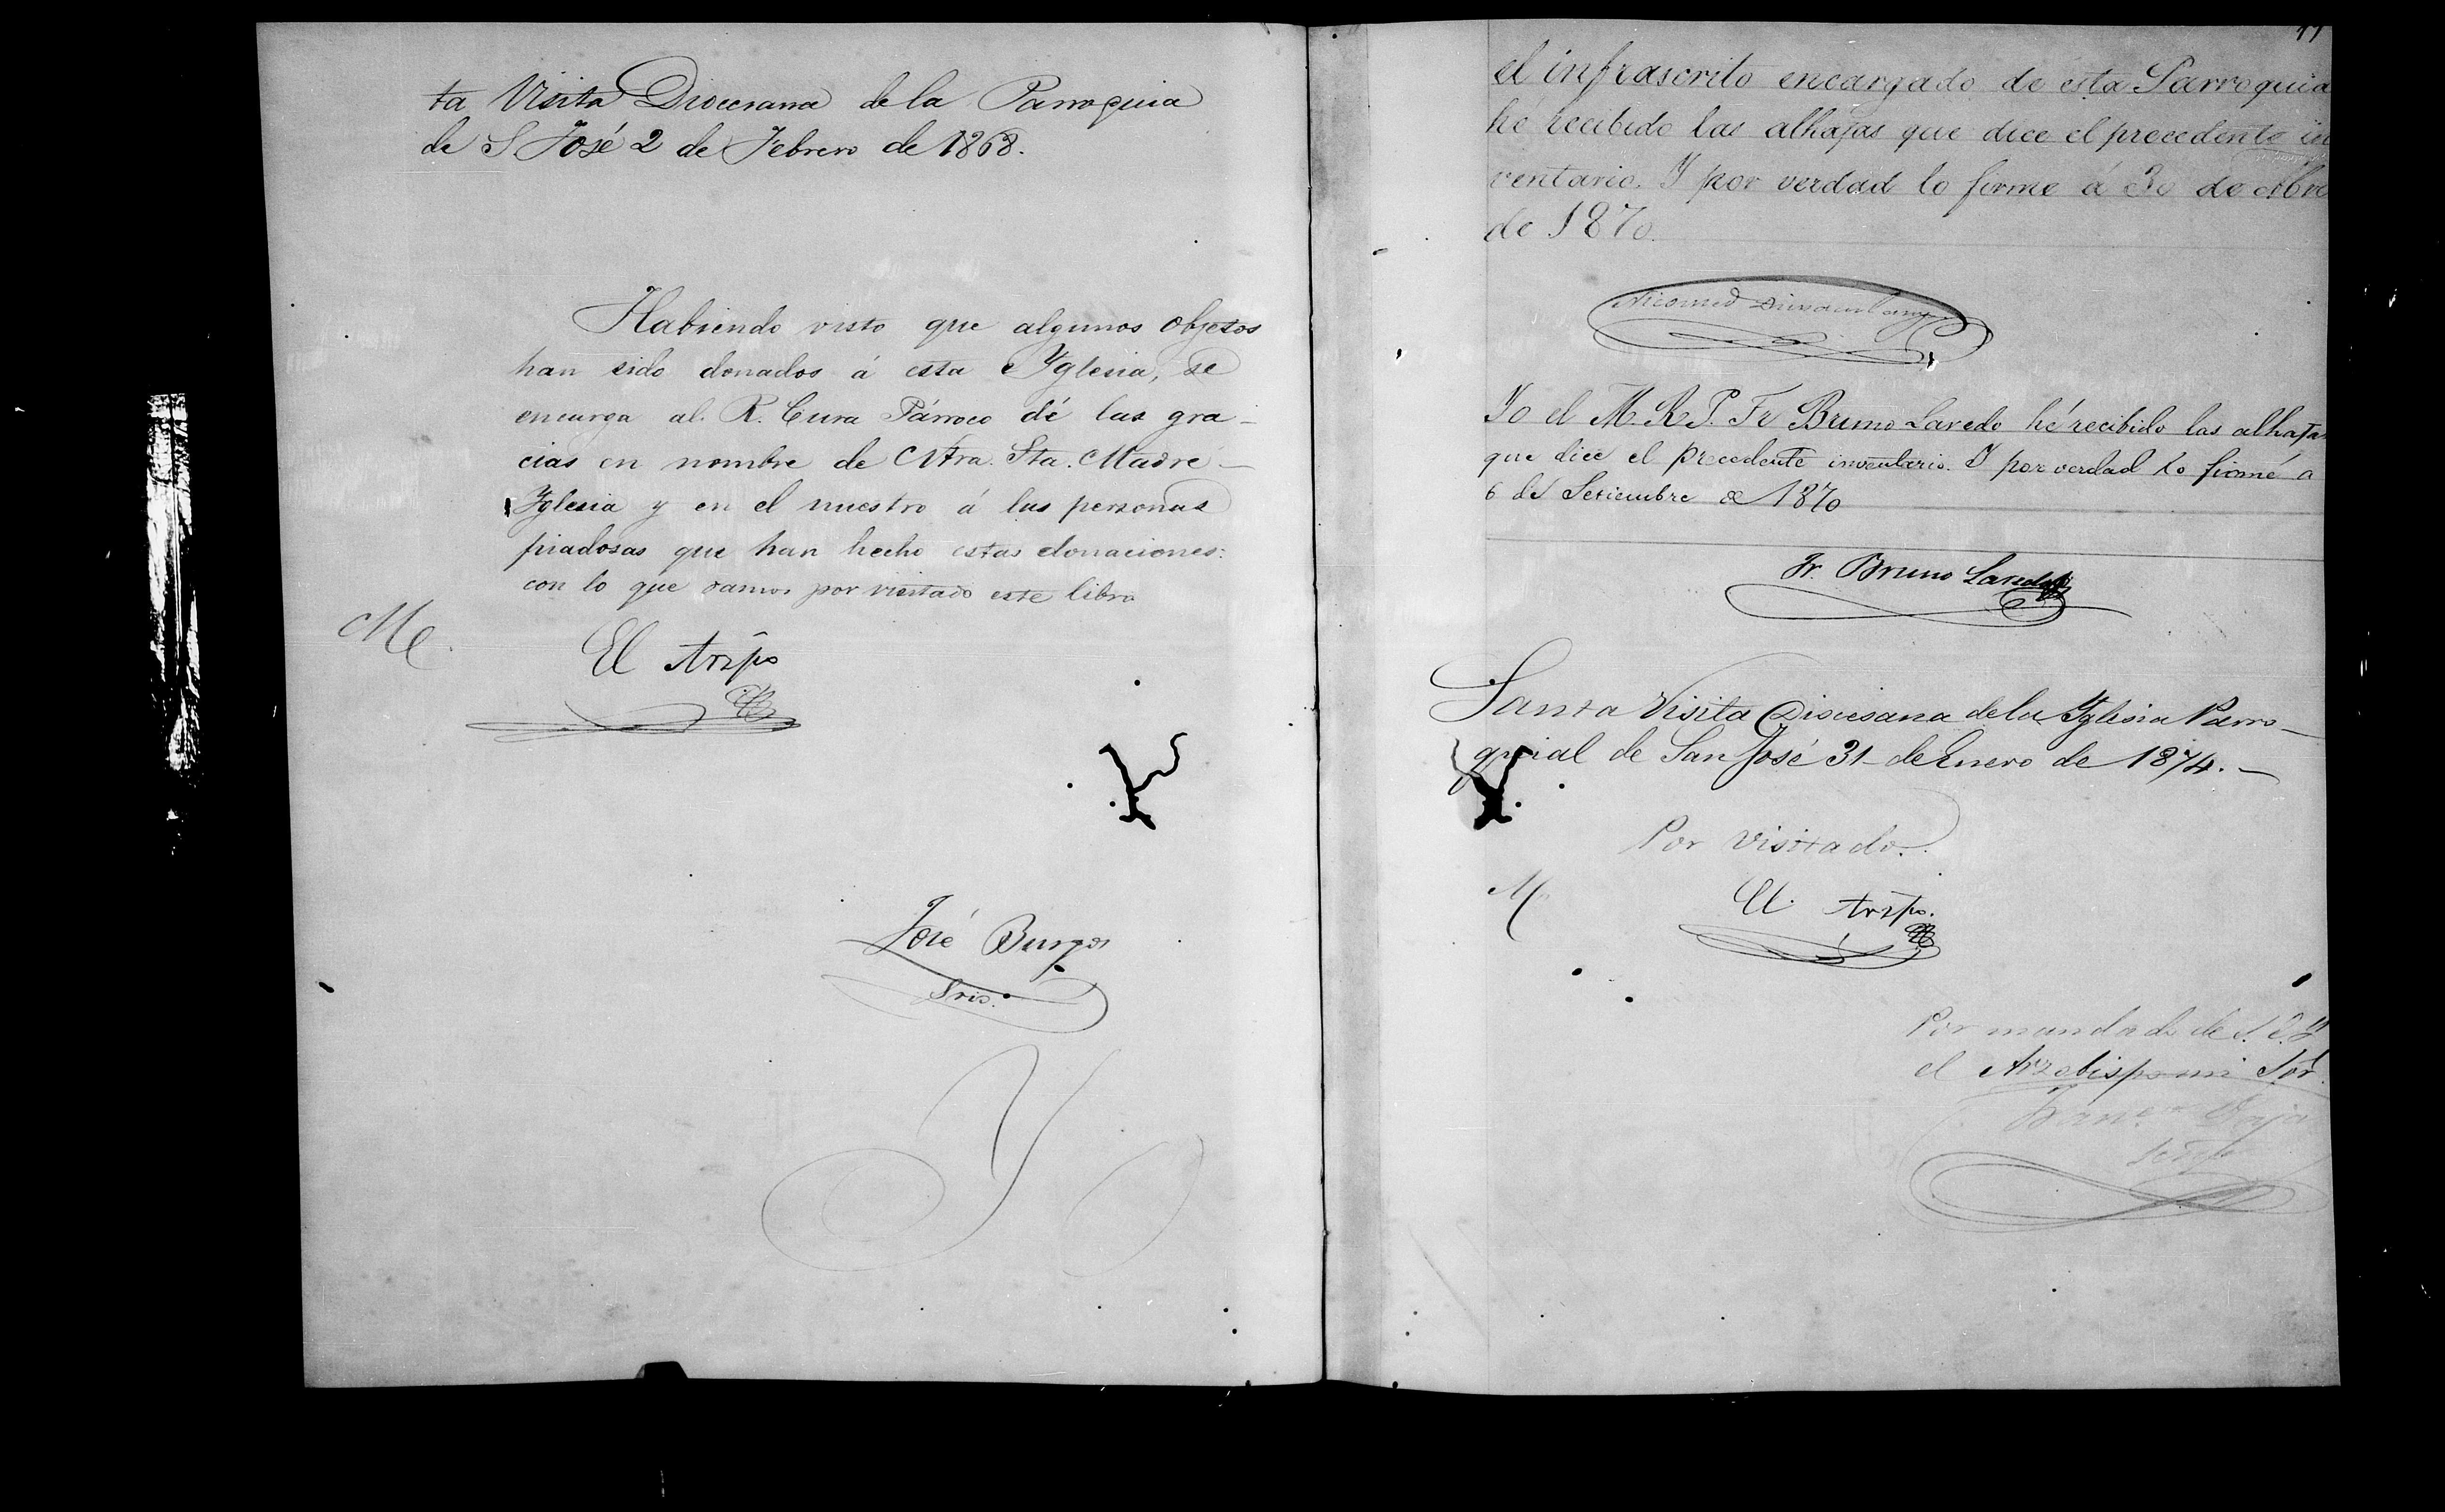 ta Visita Diocesana de la Parroquia
de S José 2 de Febrero de 1868.
Habiendo visto que algunos objetos
han sido donados á esta Yglesia, se
encarga al R. Cura Párroco dé las gra-
cias en nombre de Ntra. Sta. Madre
Yglesia y en el nuestro á las personas
piadosas que han hecho estas donaciones:
con lo que damos por visitado este libro
El Arzpo
José Burgos
Srio.
el infrascrito encargado de esta Parroquia
hé recibido las alhajas que dice el precedente in
ventario. Y por verdad lo firme á 30 de
de 1870.
Yo el M. R. P. Fr Bruno Laredo hé recibido las alhajas
que dice el precedente inventario. Y por verdad lo firmé a
6 de Setiembre de 1870
Fr. Bruno Laredo
Santa Visita Diocesana de la Yglesia Parro-
quial de San José 31 de Enero de 1874.-
Por visitado.
M
El Arzpo.
Por mandado de S. E. Y
el Arzobispo mi Sor.